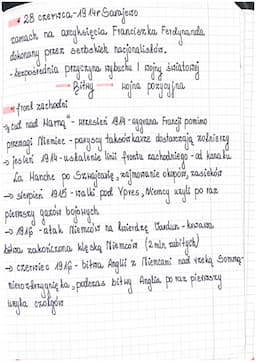 • 28 czerwca - 1914r Sarajewo
zamach na arcyksięcia Franciszka Ferdynanda
dokonany przez serbskich nacjonalistów.
- bezpośrednia przyczyna wybuchu I wojny światowej
Bitwy wojna pozycyjna
front zachodni
"cud nad Marną" - wrzesień 1914 - wygrana Francji pomimo
przewagi Niemiec - paryscy taksówkarze dostarczają żołnierzy
→ jesień 1914 - ustalenie linii frontu zachodniego - od kanału
La Manche po Szwajcarię, zajmowanie okopów, zasieków
→ sierpień 1915 - walki pod Ypres, Niemcy użyli po raz
pierwszy gazów bojowych
→ 1916 - atak Niemców na twierdzę Verdun - krwawa
bitwa zakończona klęską Niemców (2 mln zabitych)
→ czerwiec 1916 - bitwa Anglii z Niemcami nad rzeką Sommą -
nierozstrzygnięta, podczas bitwy Anglia po raz pierwszy
użyła czołgów